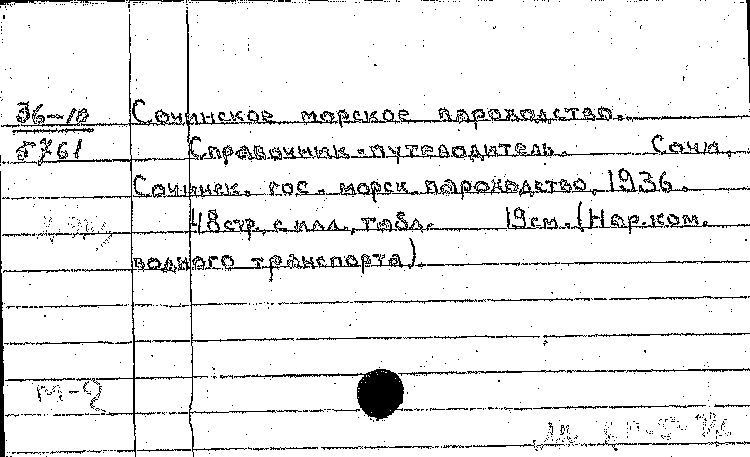 36-10
5761
Сочинское морское пароходство.
Справочник-путеводитель. Сочи,
Сочинск. гос. морск. пароходство, 1936.
48 стр. с илл., табл. 19 см. (Нар. ком.
водного транспорта).
М-2